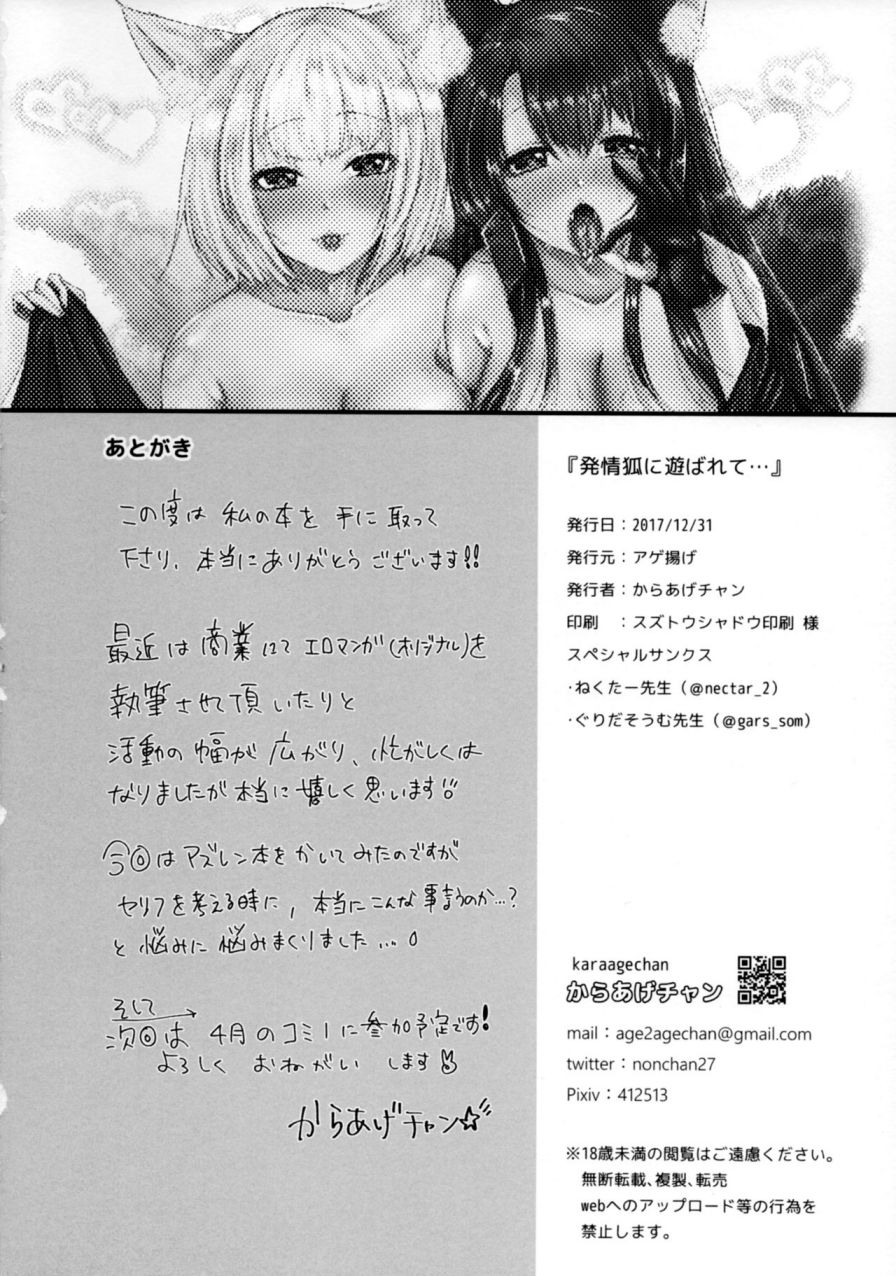 あとがき
この度は 私の本を 手に取って
下さり、本当にありがとうございます!!
最近は 商業にて エロマンガ(オリジナル)を
執筆させて頂いたりと
活動の幅が 広がり、忙がしくは
なりましたが 本当に 嬉しく 思います!!
今回は アズレン本を かいてみたのですが
セリフを考える時に、本当にこんな事言うのか…?
と 悩みに 悩みまくりました…。
そして
次回は 4月の コミ1に参加予定です!
よろしく おねがい します
からあげチャン☆
『発情狐に遊ばれて…』
発行日：2017/12/31
発行元：アゲ揚げ
発行者：からあげチャン
印刷　：スズトウシャドウ印刷 様
スペシャルサンクス
·ねくたー先生（@nectar_2）
·ぐりだそうむ先生（@gars_som）
karaagechan
からあげチャン
mail：age2agechan@gmail.com
twitter：nonchan27
Pixiv：412513
※18歳未満の閲覧はご遠慮ください。
無断転載、複製、転売
webへのアップロード等の行為を
禁止します。